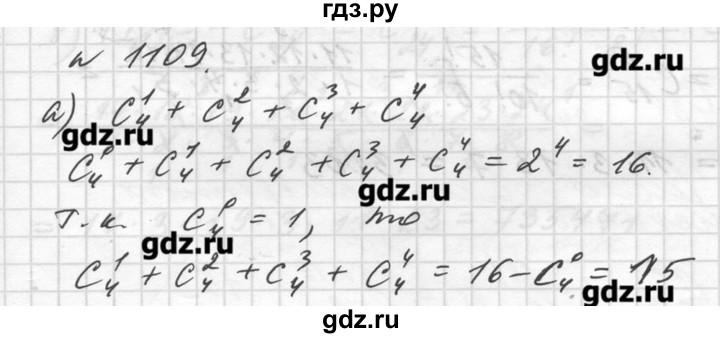 гдз.ру
№ 1109.
gdz.ru
а) C₄¹ + C₄² + C₄³ + C₄⁴
gdz.ru
C₄⁰ + C₄¹ + C₄² + C₄³ + C₄⁴ = 2⁴ = 16.
gdz.ru
т.к. C₄⁰ = 1, то
gdz.ru
C₄¹ + C₄² + C₄³ + C₄⁴ = 16 - C₄⁰ = 15
gdz.ru
gdz.ru